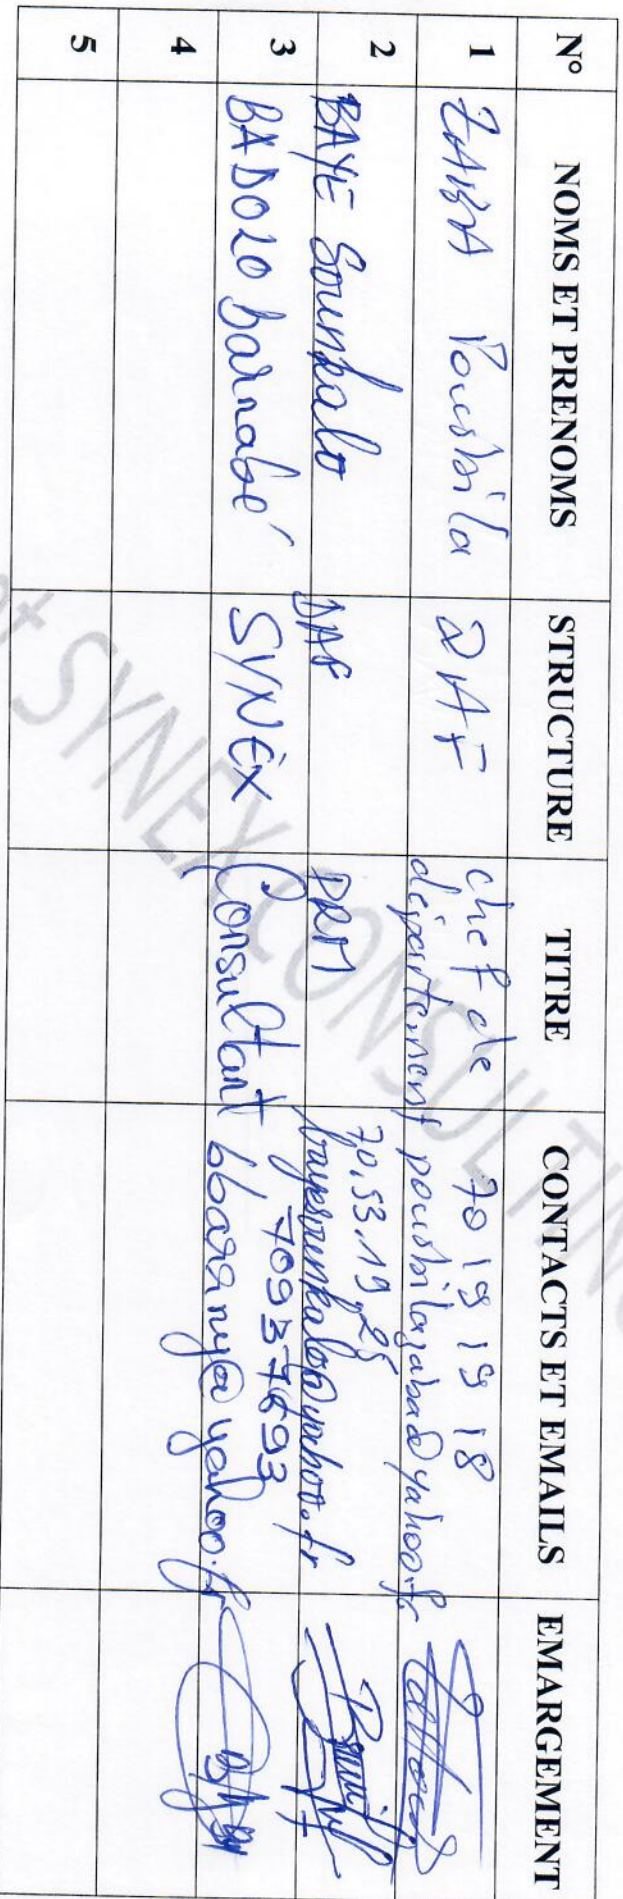 N° NOMS ET PRENOMS STRUCTURE TITRE CONTACTS ET EMAILS EMARGEMENT
1 ZABA Pousbila DAF chef de département 70 19 19 18 pousbilazaba@yahoo.fr
2 BAYE Sounkalo DAF PRM 70.53.19.25 bayesounkalo@yahoo.fr
3 BADOLO Barnabé SYNEX Consultant 70937693 bbarany@yahoo.fr
4
5
SYNEX CONSULTING